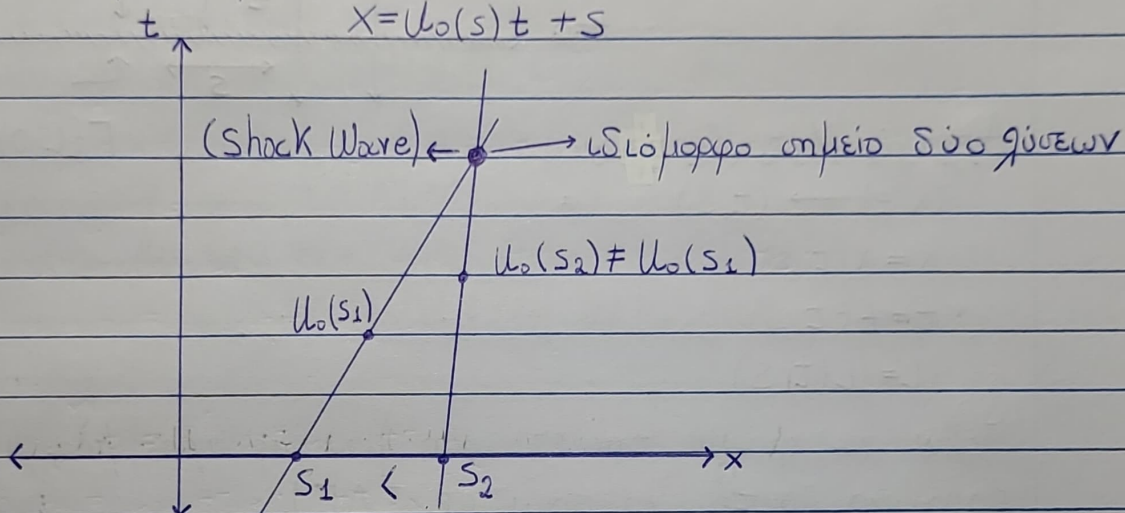 t x = u₀(s) t + s
(Shock Wave) ιδιόμορφο σημείο δύο λύσεων
u₀(s₂) ≠ u₀(s₁)
u₀(s₁)
x
s₁ < s₂